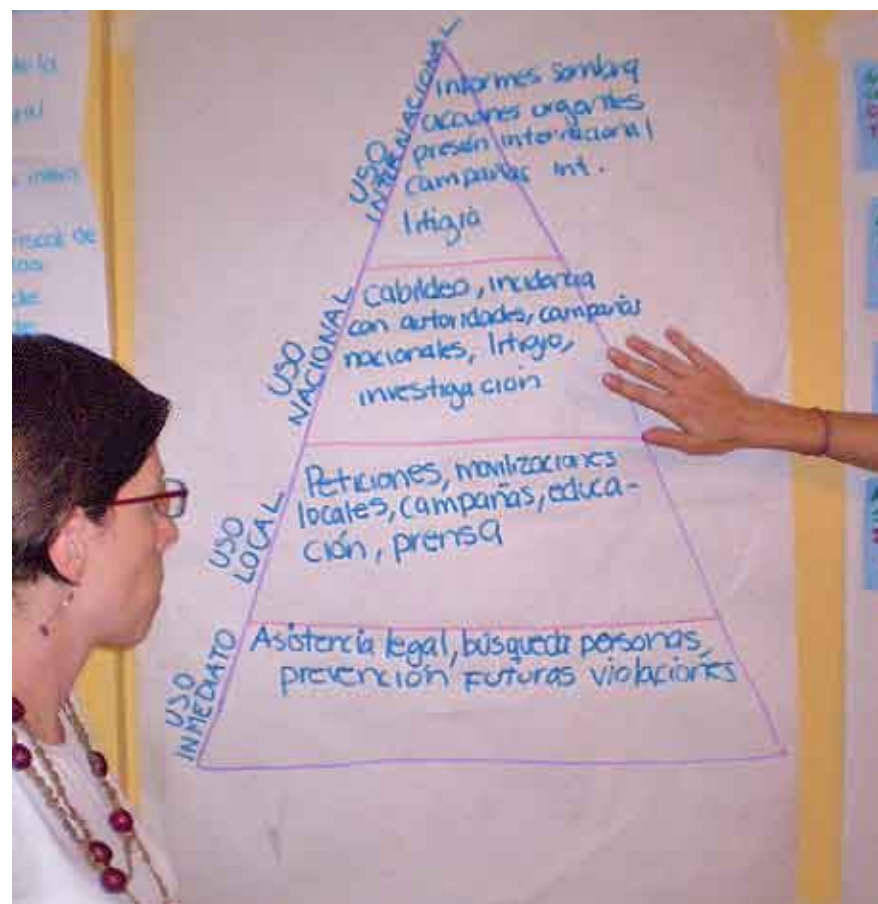 USO
INTERNACIONAL
Informes sombra
acciones urgentes
presión internacional
campañas int.
litigio
USO
NACIONAL
cabildeo, incidencia
con autoridades, campañas
nacionales, litigio,
investigación
USO
LOCAL
Peticiones, movilizaciones
locales, campañas, educa-
ción, prensa
USO
INMEDIATO
Asistencia legal, búsqueda personas,
prevención futuras violaciones
de la
de